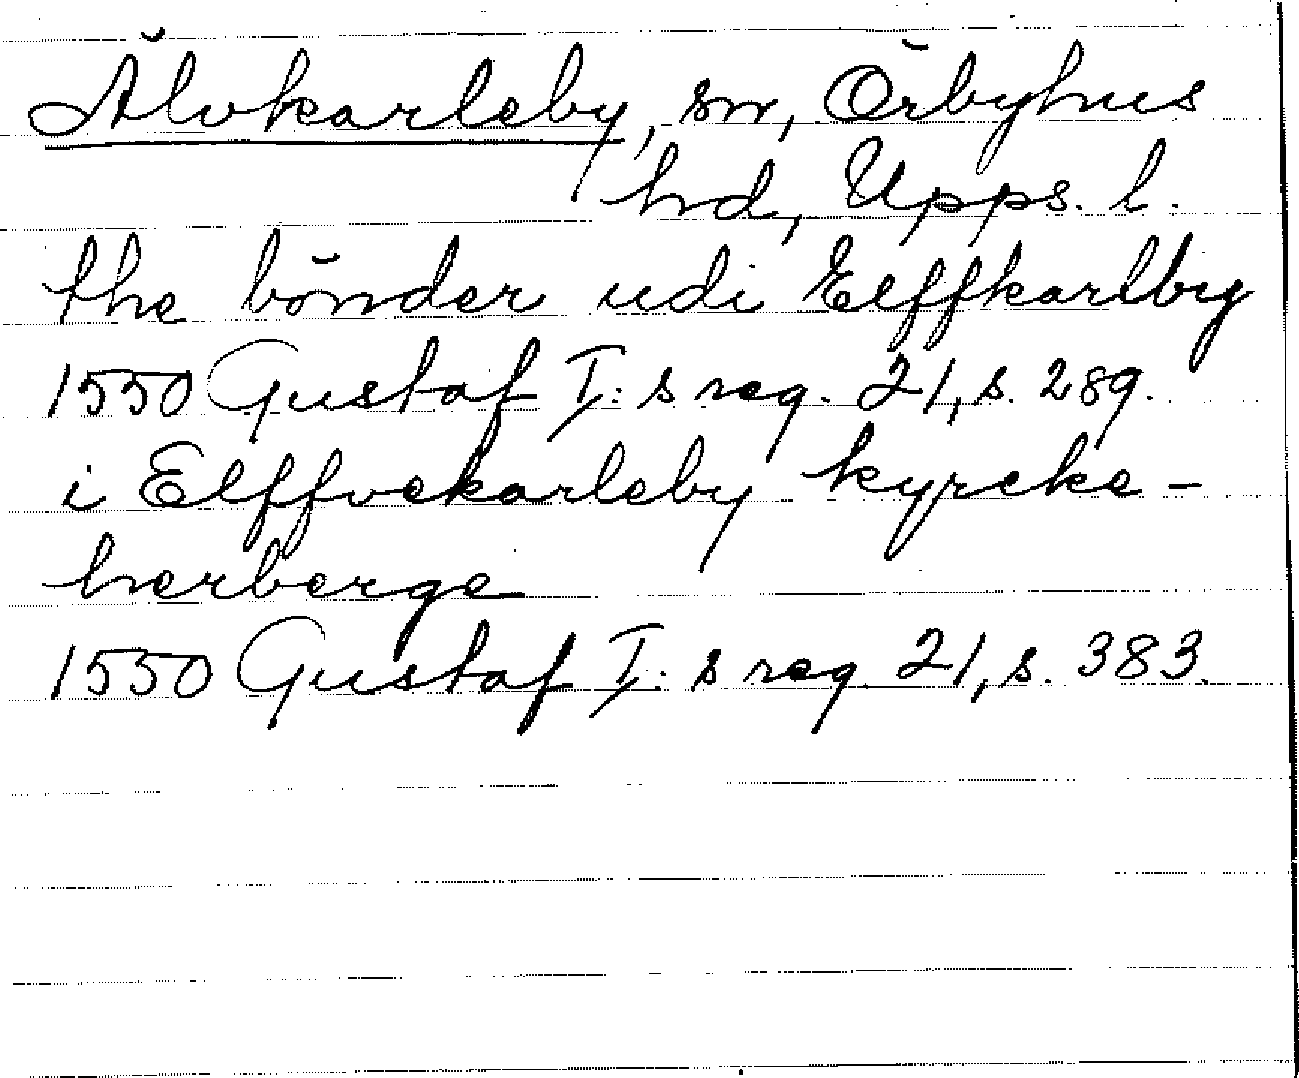 Älvkarleby, sn, Örbyhus
hd, Upps. l.
the bönder udi Elffkarlby
1550 Gustaf I:s reg. 21, s. 289.
i Elffvekarleby kyrcke-
herberge
1550 Gustaf I:s reg. 21, s. 383.